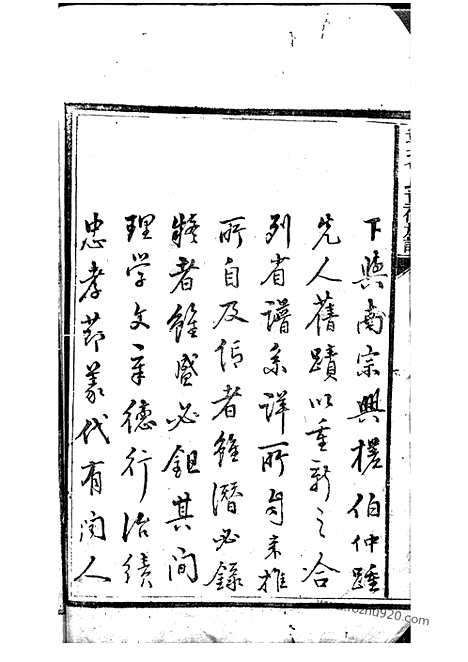 下與南宗興槎伯仲踵
先人舊蹟以重新之洽
列省譜系詳所自來推
所自及信者雖潛必錄
疑者雖盛必鉏其間
理学文章德行治績
忠孝節義代有闻人